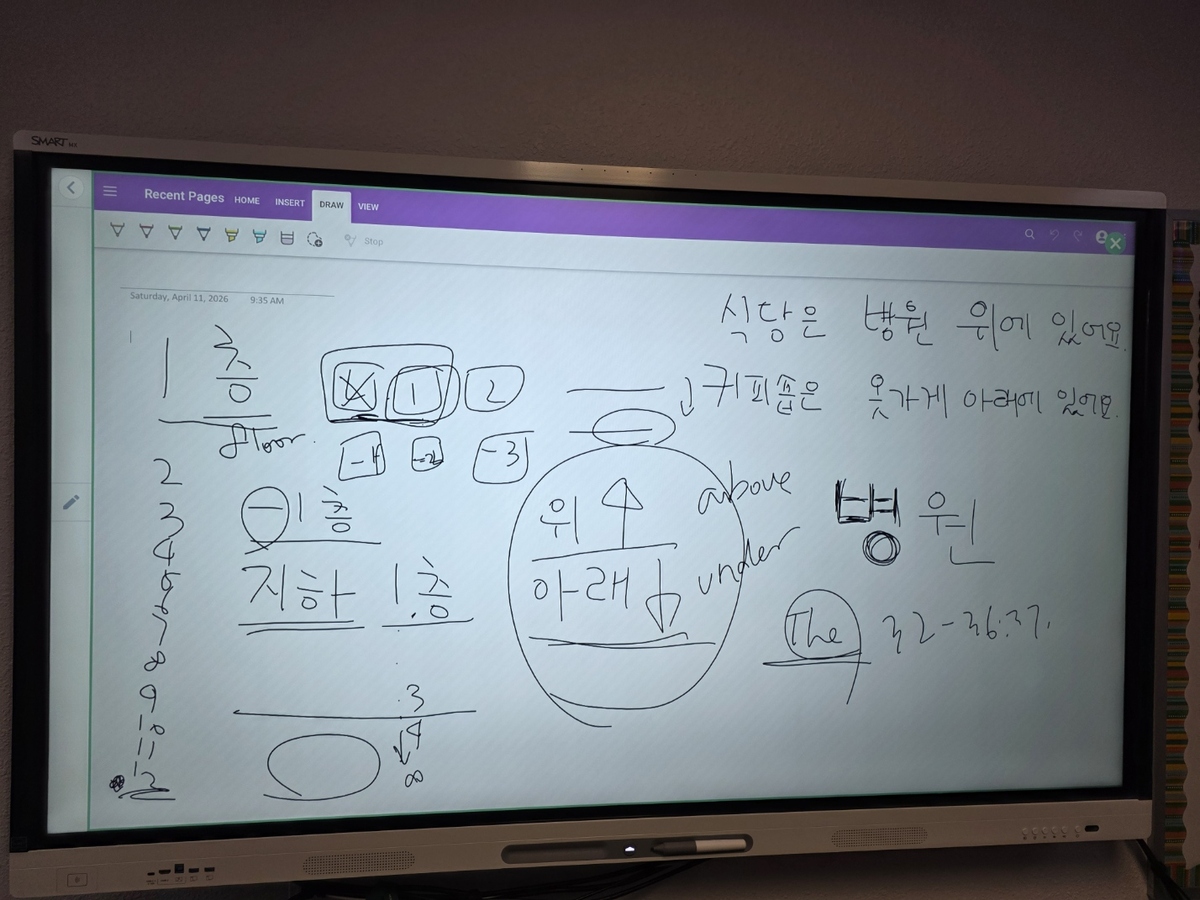 SMART
Recent Pages HOME INSERT DRAW VIEW
Stop
Saturday, April 11, 2026 9:35 AM
1 층
floor.
2
3
4
5
6
7
8
9
10
11
12
1 2
-1 -2 -3
-1층
지하 1층
3
4
∞
위 above
아래 under
식당은 병원 위에 있어요.
커피숍은 옷가게 아래에 있어요.
병원
The 32-36:37.